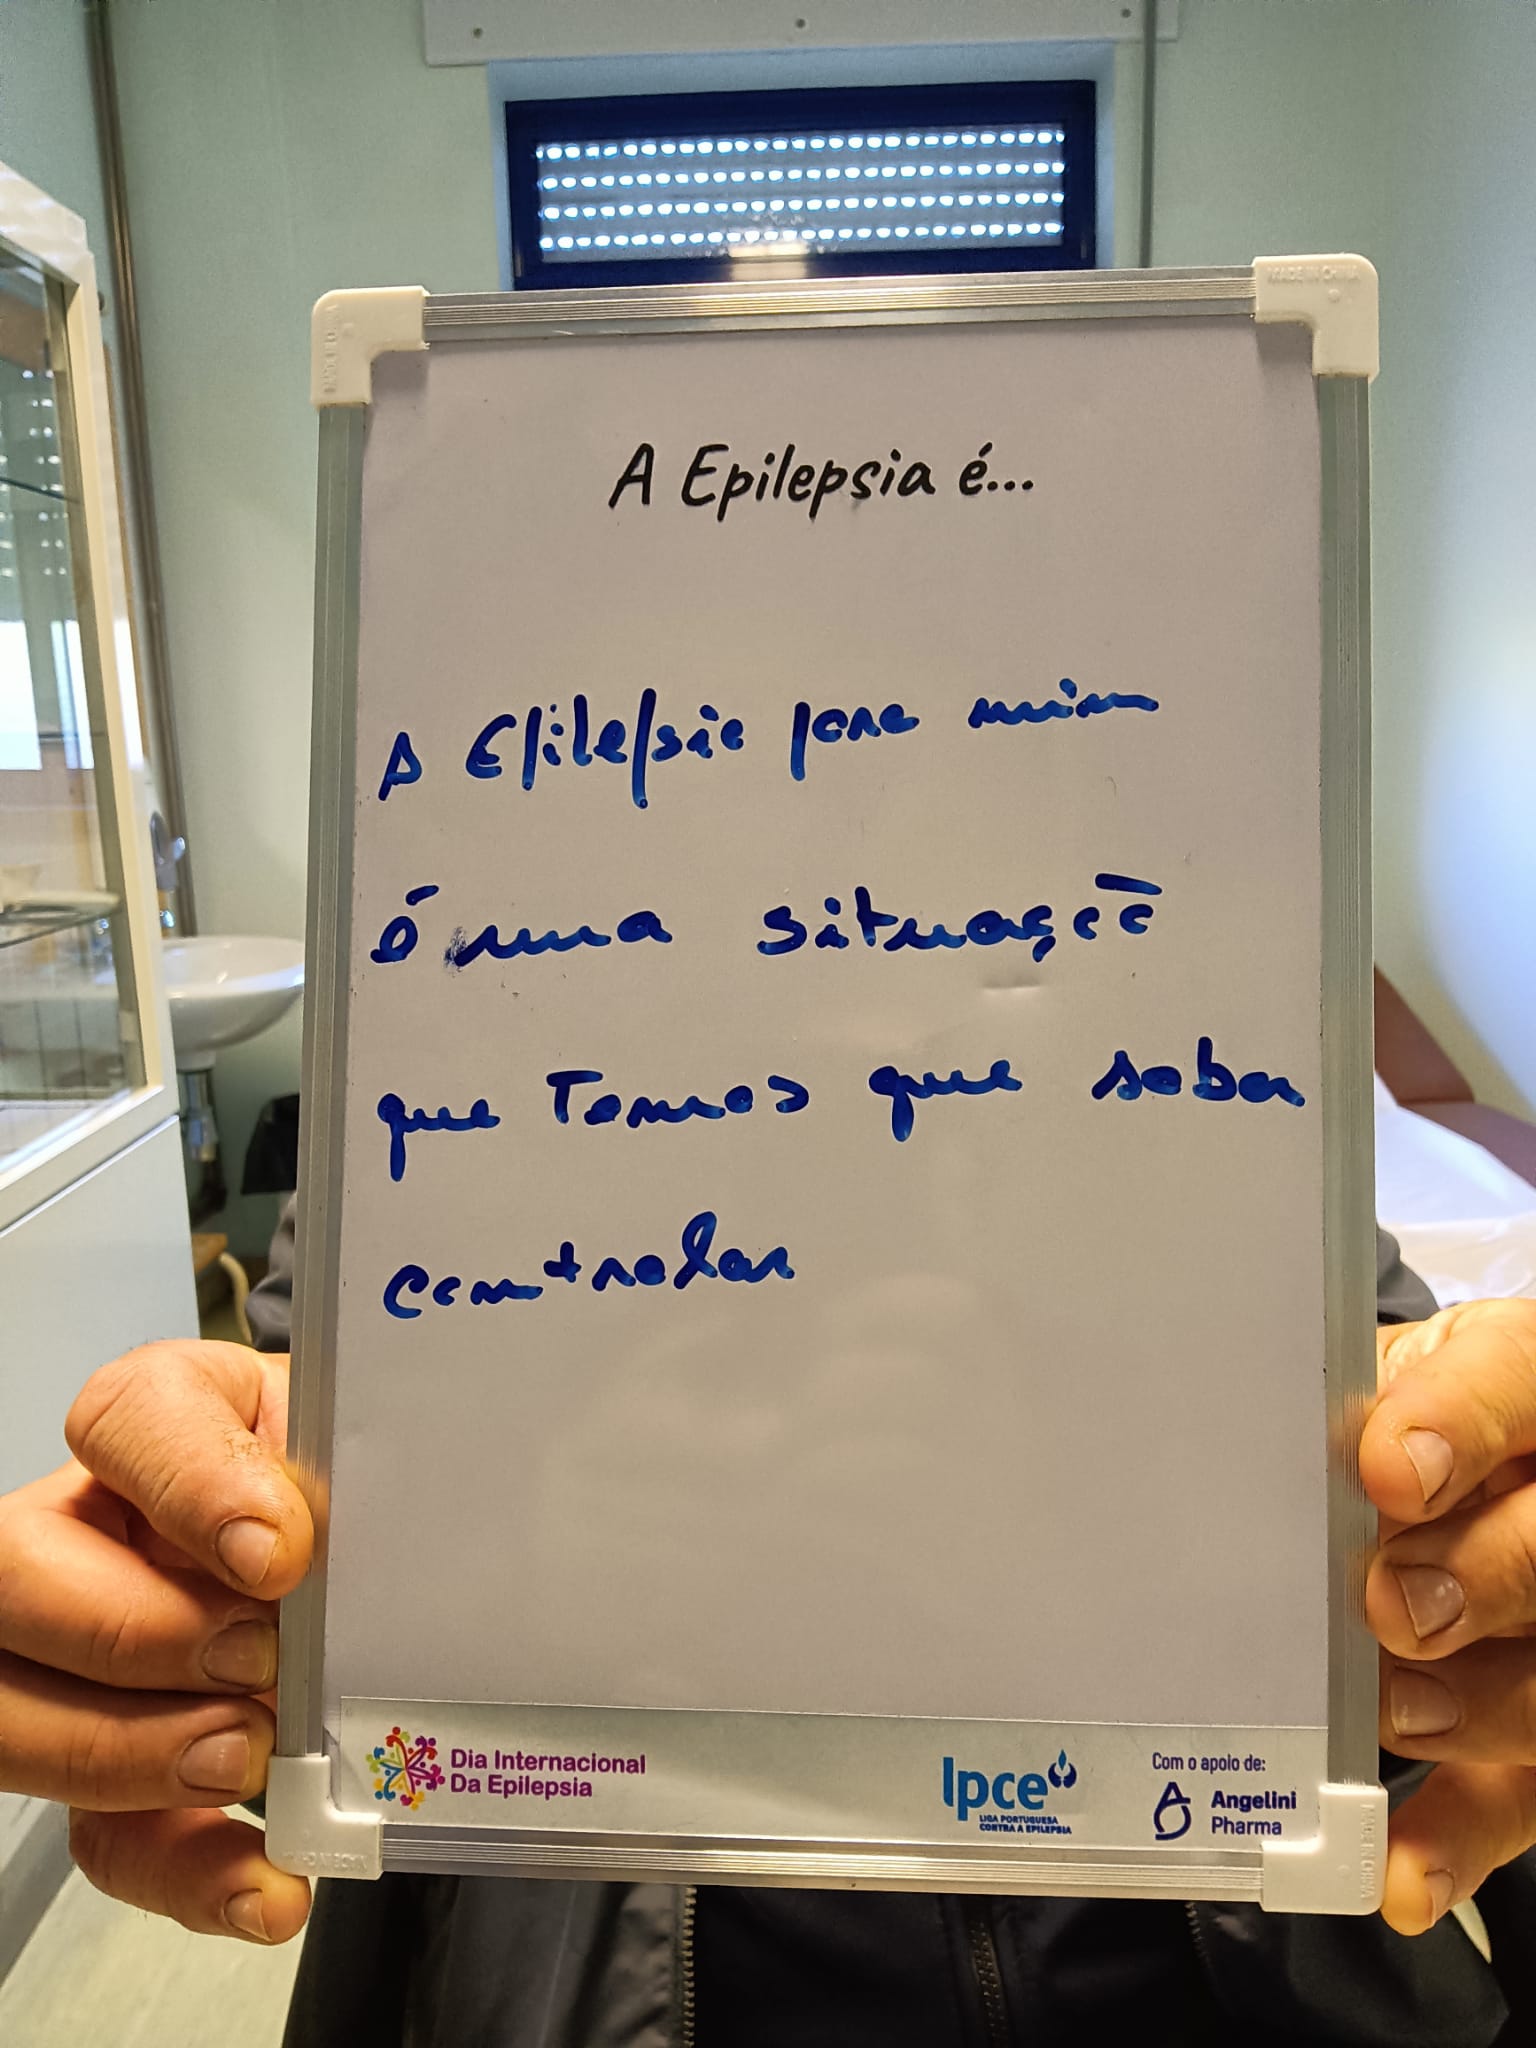 MADE IN CHINA
A Epilepsia é...
A Epilepsia para mim
é uma situação
que Temos que saber
controlar
Dia Internacional
Da Epilepsia
lpce
LIGA PORTUGUESA
CONTRA A EPILEPSIA
Com o apoio de:
Angelini
Pharma
MADE IN CHINA
MADE IN CHINA